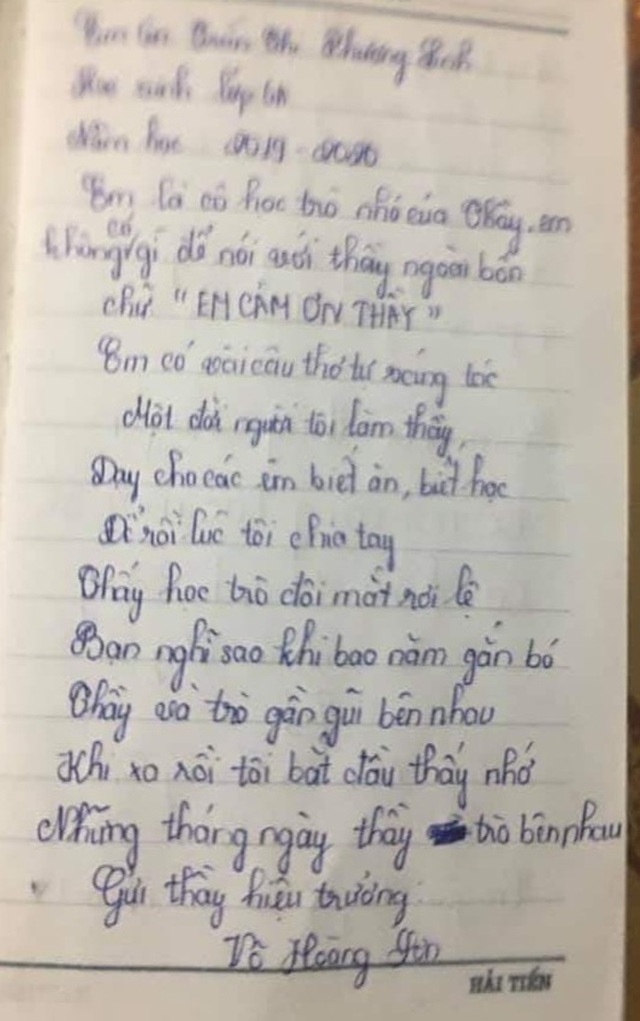 Em tên Trần Thị Phương Linh
Học sinh lớp 6A
Năm học 2019 - 2020
Em là cô học trò nhỏ của Thầy, em
không có gì để nói với thầy ngoài bốn
chữ "EM CẢM ƠN THẦY"
Em có vài câu thơ tự sáng tác
Một đời người tôi làm thầy,
Dạy cho các em biết ăn, biết học
Để rồi lúc tôi chia tay
Thấy học trò đôi mắt rơi lệ
Bạn nghĩ sao khi bao năm gắn bó
Thầy và trò gần gũi bên nhau
Khi xa rồi tôi bắt đầu thấy nhớ
Những tháng ngày thầy trò bên nhau
Gửi thầy hiệu trưởng
Võ Hoàng
HẢI TIẾN